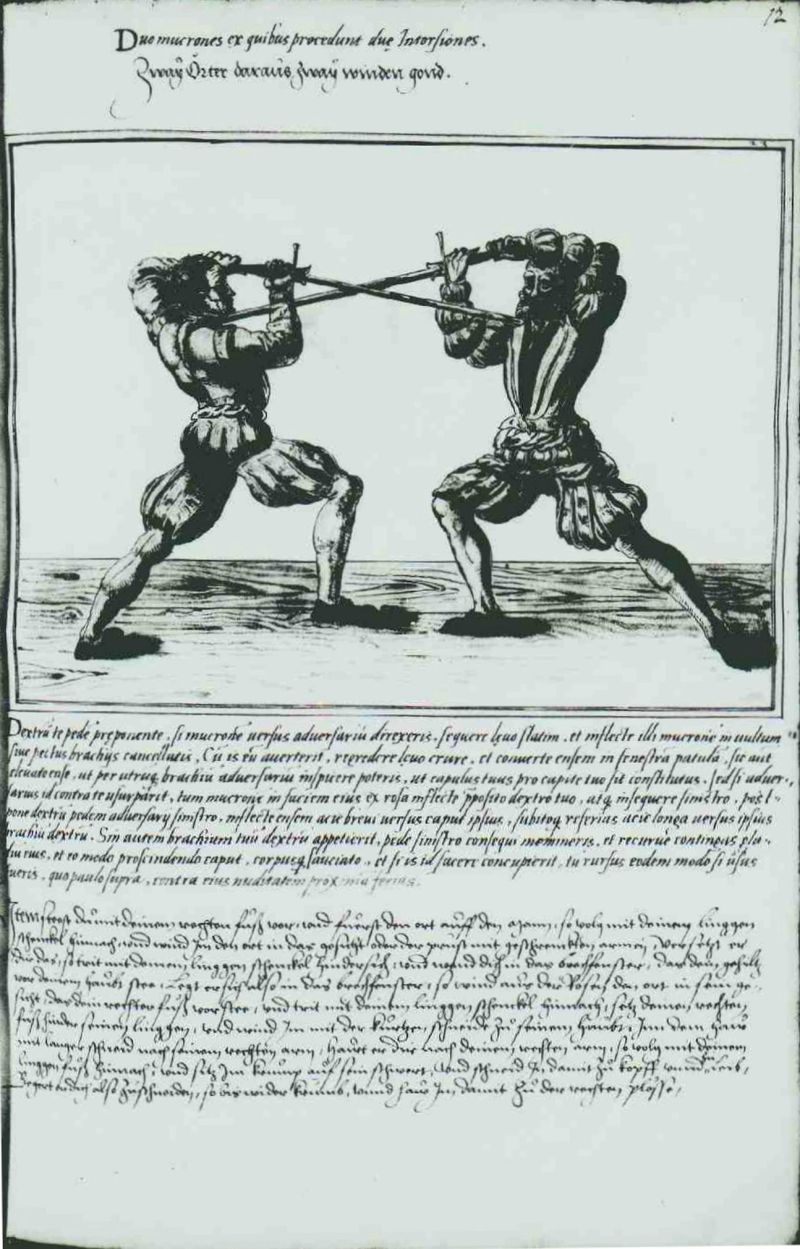 12
Duo mucrones ex quibus procedunt duę Intorsiones.
Zwaÿ Örter daraus zwaÿ winden gond.
Dextrū te pede pręponente, si mucronē uersus aduersariū direxeris, sequere lęuo statim, et inflecte illi mucronē in uultum
siue pectus brachijs cancellatis, Cū is eū auerterit, regredere lęuo crure, et conuerte ensem in fenestrā patulā, sic aut
eleuato ense, ut per utrumq brachiū aduersariū inspicere poteris, ut capulus tuus pro capite tuo sit constitutus. sed si aduer-
sarius id contra te usurparit, tum mucronē in faciem eius ex rosa inflecte pręposito dextro tuo, atq insequere sinistro, post-
pone dextrū pedem aduersarÿ sinistro, inflecte ensem acie breui uersus caput ipsius, subitoq referias acie longa uersus ipsius
brachiū dextrū. Sin autem brachium tuū dextrū appetierit, pede sinistro consequi memineris, et recuruę contingas gla-
diū eius, et eo modo proscindendo caput, corpusq sauciato, et si is id facere concupierit, tu rursus eodem modo si usus
fueris, quo paulo supra, contra eius nuditatem proximā ferias.
Item steest du mit deinem rechten fuß vor, und fuerst den ort auff den Mann, so volg mit deinem linggen
schenckel hinnach, und wind Im den ort in das gesicht, oder der prust mit geschrenckten armen, versetzt er
dir das, so trit mit deinem linggen schenckel hindersich, und wend dich in das brechfenster, das dein gehiltz
vor deinem haubt stee, legt er sich also in das brechfenster, so wind aus der Rosen den ort in sein ge-
sicht, das dein rechter fuß vorstee, und trit mit deinem linggen schenckel hinnach, setz deinen rechten
fuß hinder seinen linggen, und wind Im mit der kurtzen schneid zu seinem haubt, Im dem haw
mit langer schneid nach seinem rechten arm, hawt er dir nach deinem rechten arm, so volg mit deinem
linggen fuß hinnach, und setz Im krump auf sein schwert, und schneid In damit zu kopff unnd leib,
Begert er dich also zuschneiden, so bis wider krumb, unnd haw In damit zu der nechsten plösse,